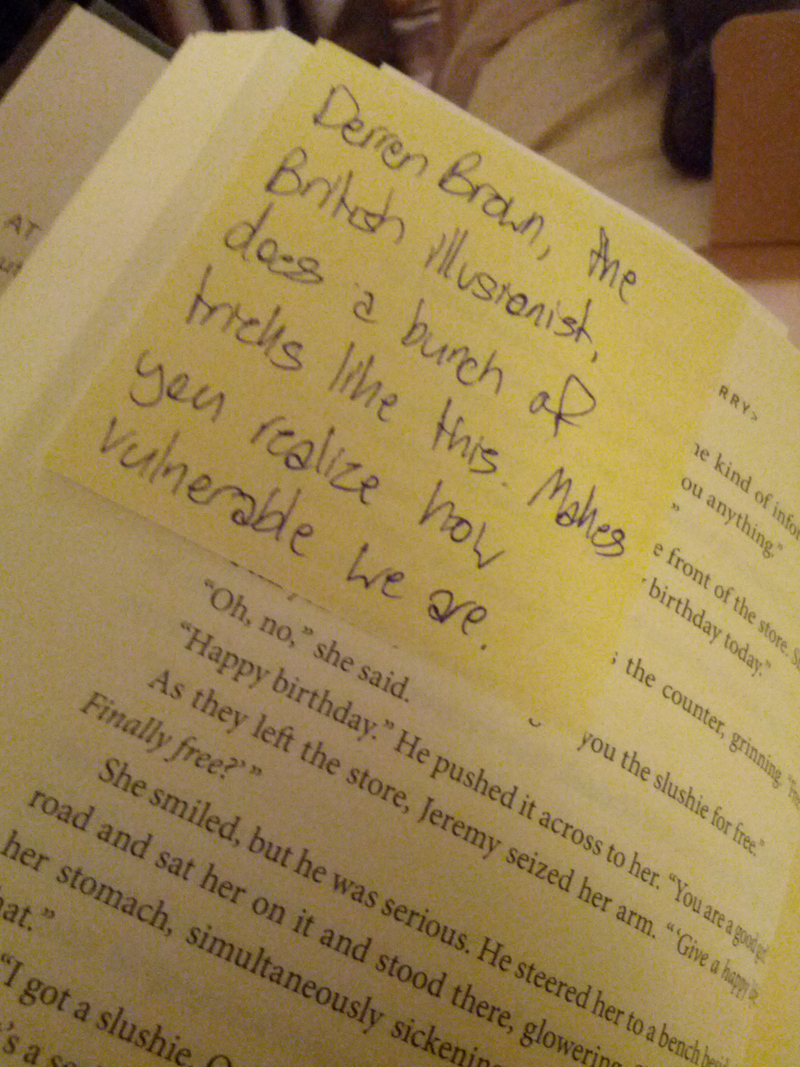 Derren Brown, the
British illusionist,
does a bunch of
tricks like this. Makes
you realize how
vulnerable we are.
AT
RRY>
kind of
ou anything."
"
e front of the store.
birthday today."
the counter, grinning.
you the slushie for free."
"Oh, no," she said.
"Happy birthday." He pushed it across to her. "You are a good
As they left the store, Jeremy seized her arm. "'Give a happy
Finally free?'"
She smiled, but he was serious. He steered her to a bench
road and sat her on it and stood there, glowering.
her stomach, simultaneously
hat."
"I got a slushie.
's a